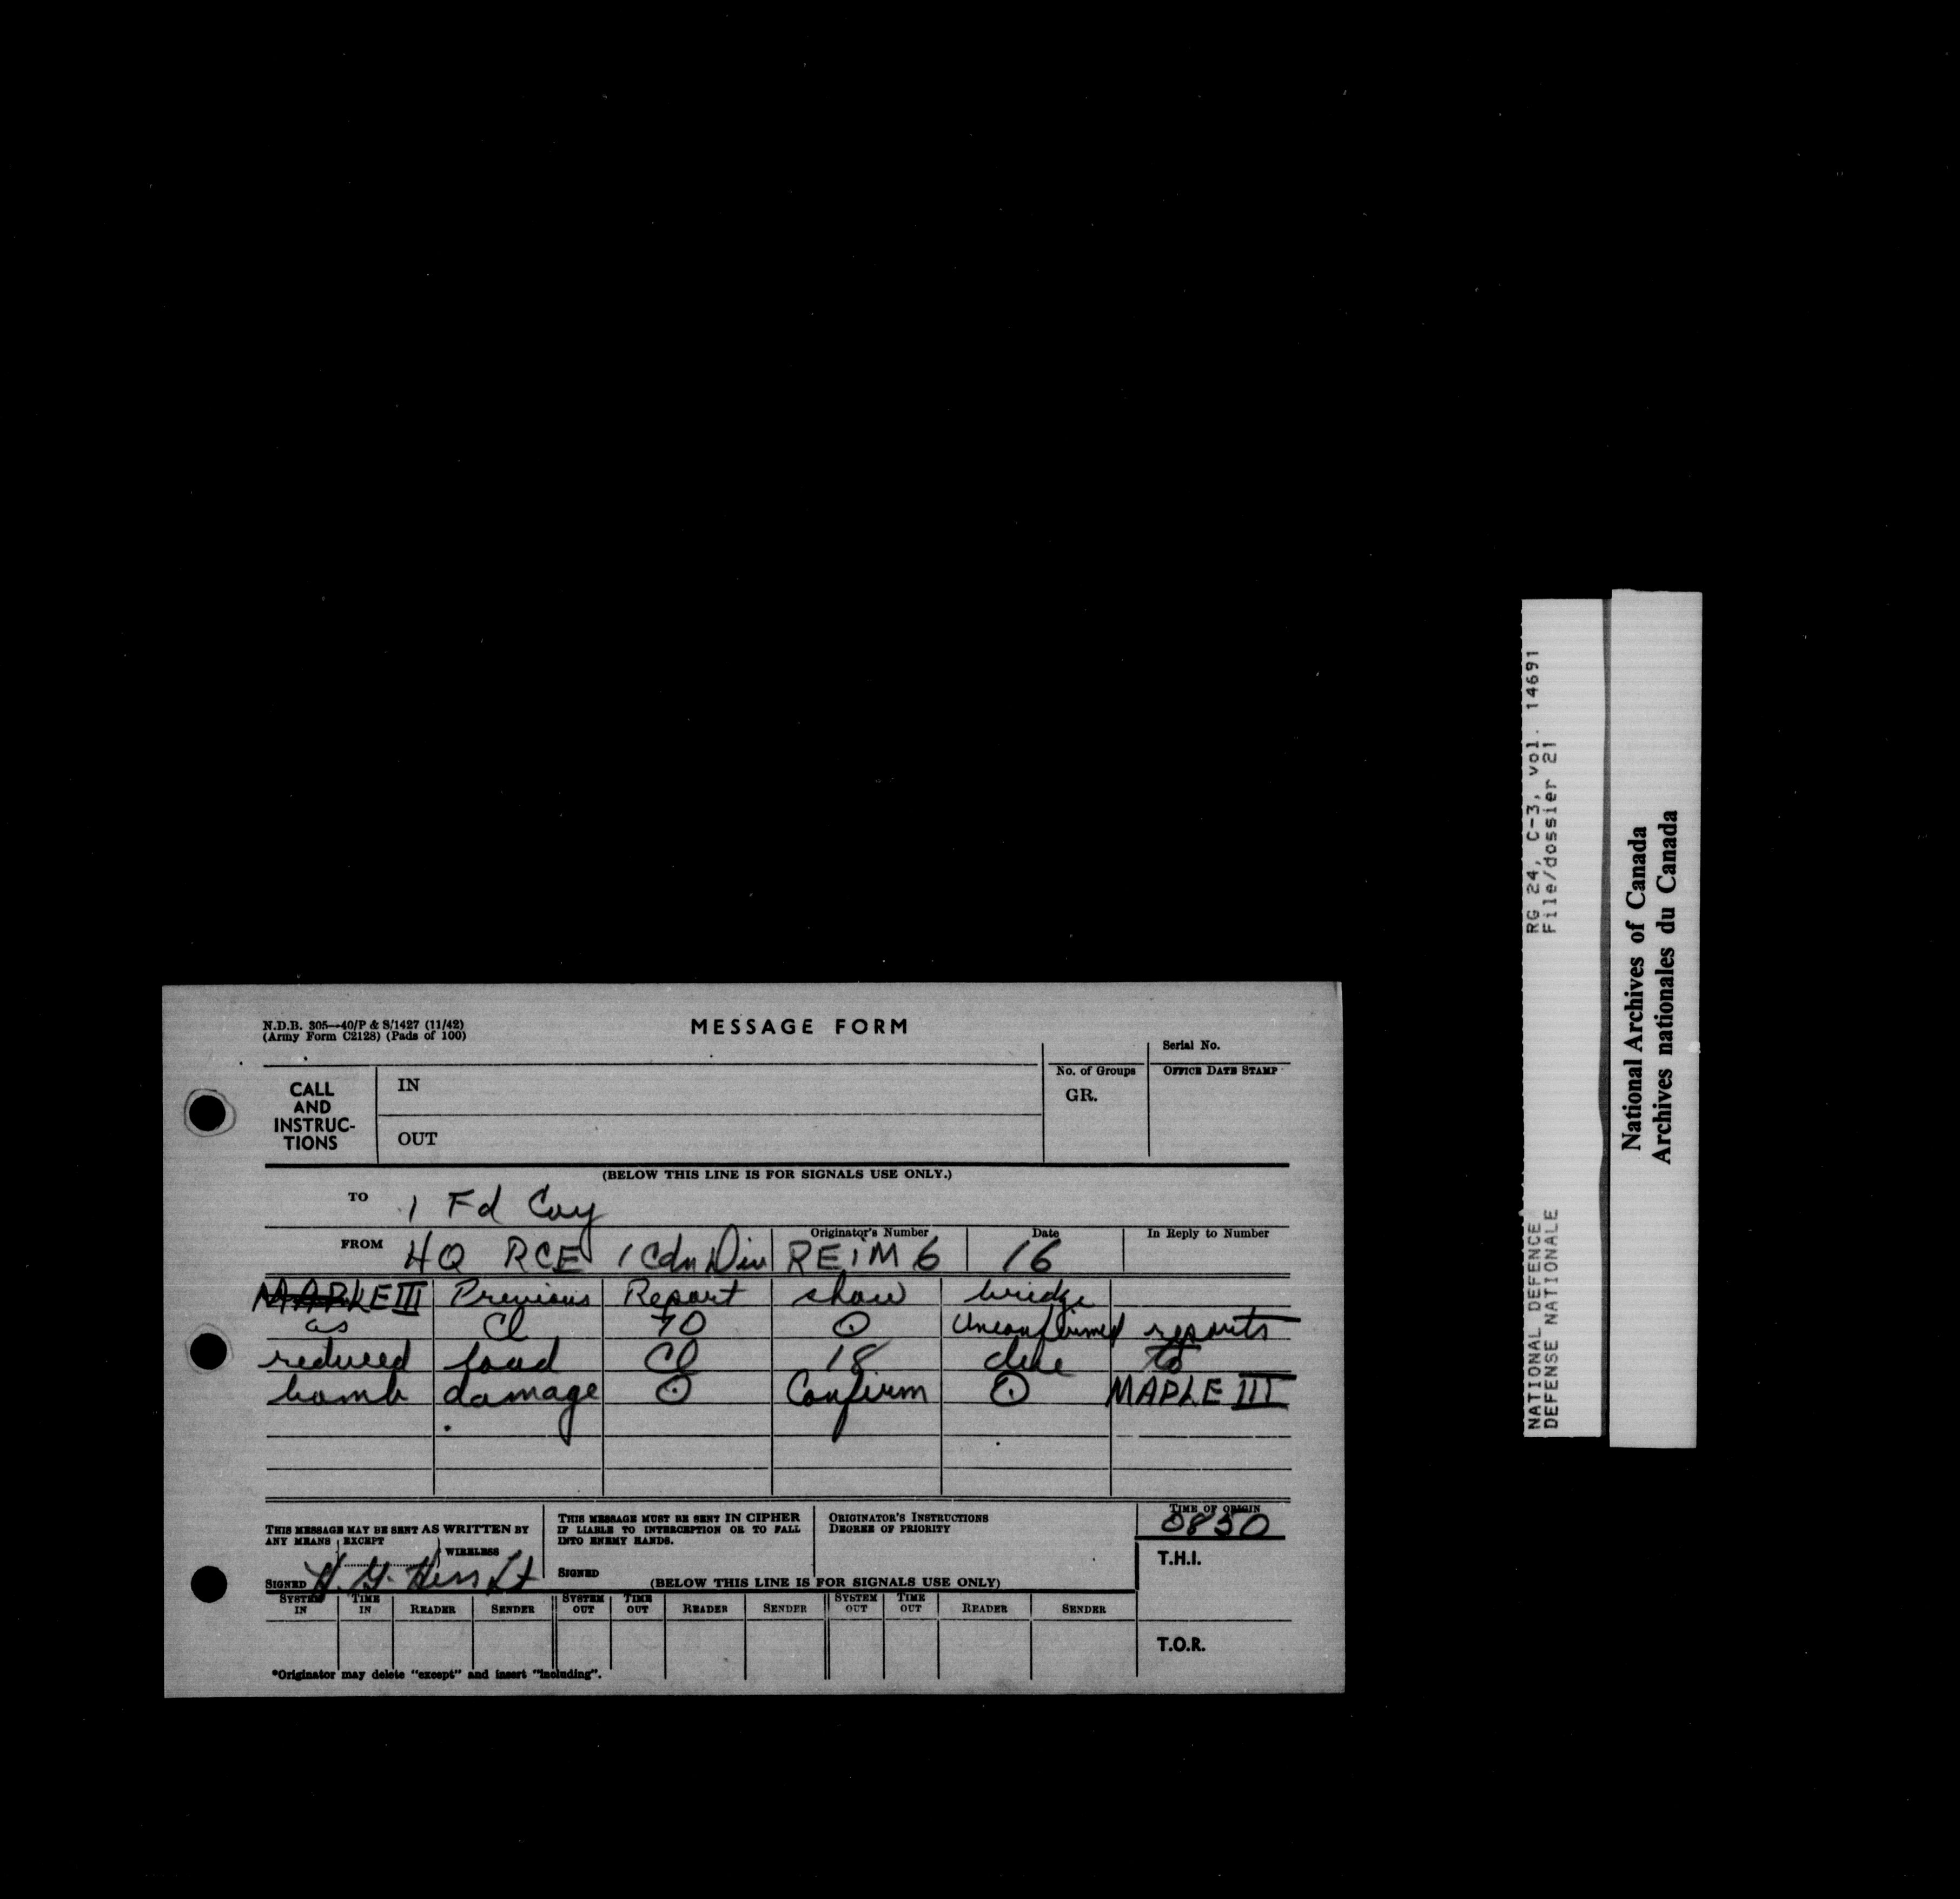 N.D.B. 305—40/P & S/1427 (11/42)
(Army Form C2128) (Pads of 100)
MESSAGE FORM
Serial No.
CALL AND INSTRUC-TIONS
IN
OUT
No. of Groups
GR.
OFFICE DATE STAMP
(BELOW THIS LINE IS FOR SIGNALS USE ONLY.)
TO 1 Fd Coy
FROM HQ RCE 1 Cdn Div Originator's Number REIM 6 Date 16 In Reply to Number
MAPLE III Previous Report show bridge
as Cl 70 ⊙ Unconfirmed reports
reduced load Cl 18 due to
bomb damage ⊙ Confirm ⊙ MAPLE III
THIS MESSAGE MAY BE SENT AS WRITTEN BY
ANY MEANS EXCEPT
WIRELESS
SIGNED H. G. Hess Lt
THIS MESSAGE MUST BE SENT IN CIPHER
IF LIABLE TO INTERCEPTION OR TO FALL
INTO ENEMY HANDS.
SIGNED
ORIGINATOR'S INSTRUCTIONS
DEGREE OF PRIORITY
TIME OF ORIGIN
0850
T.H.I.
(BELOW THIS LINE IS FOR SIGNALS USE ONLY)
SYSTEM IN TIME IN READER SENDER SYSTEM OUT TIME OUT READER SENDER SYSTEM OUT TIME OUT READER SENDER
T.O.R.
*Originator may delete "except" and insert "including".
NATIONAL DEFENCE RG 24, C-3, vol. 14691
DEFENSE NATIONALE File/dossier 21
National Archives of Canada
Archives nationales du Canada